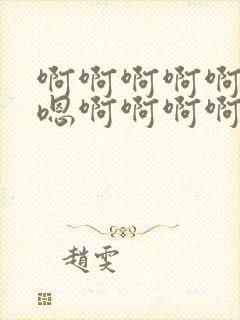 啊啊啊啊啊
嗯啊啊啊啊
趙雯